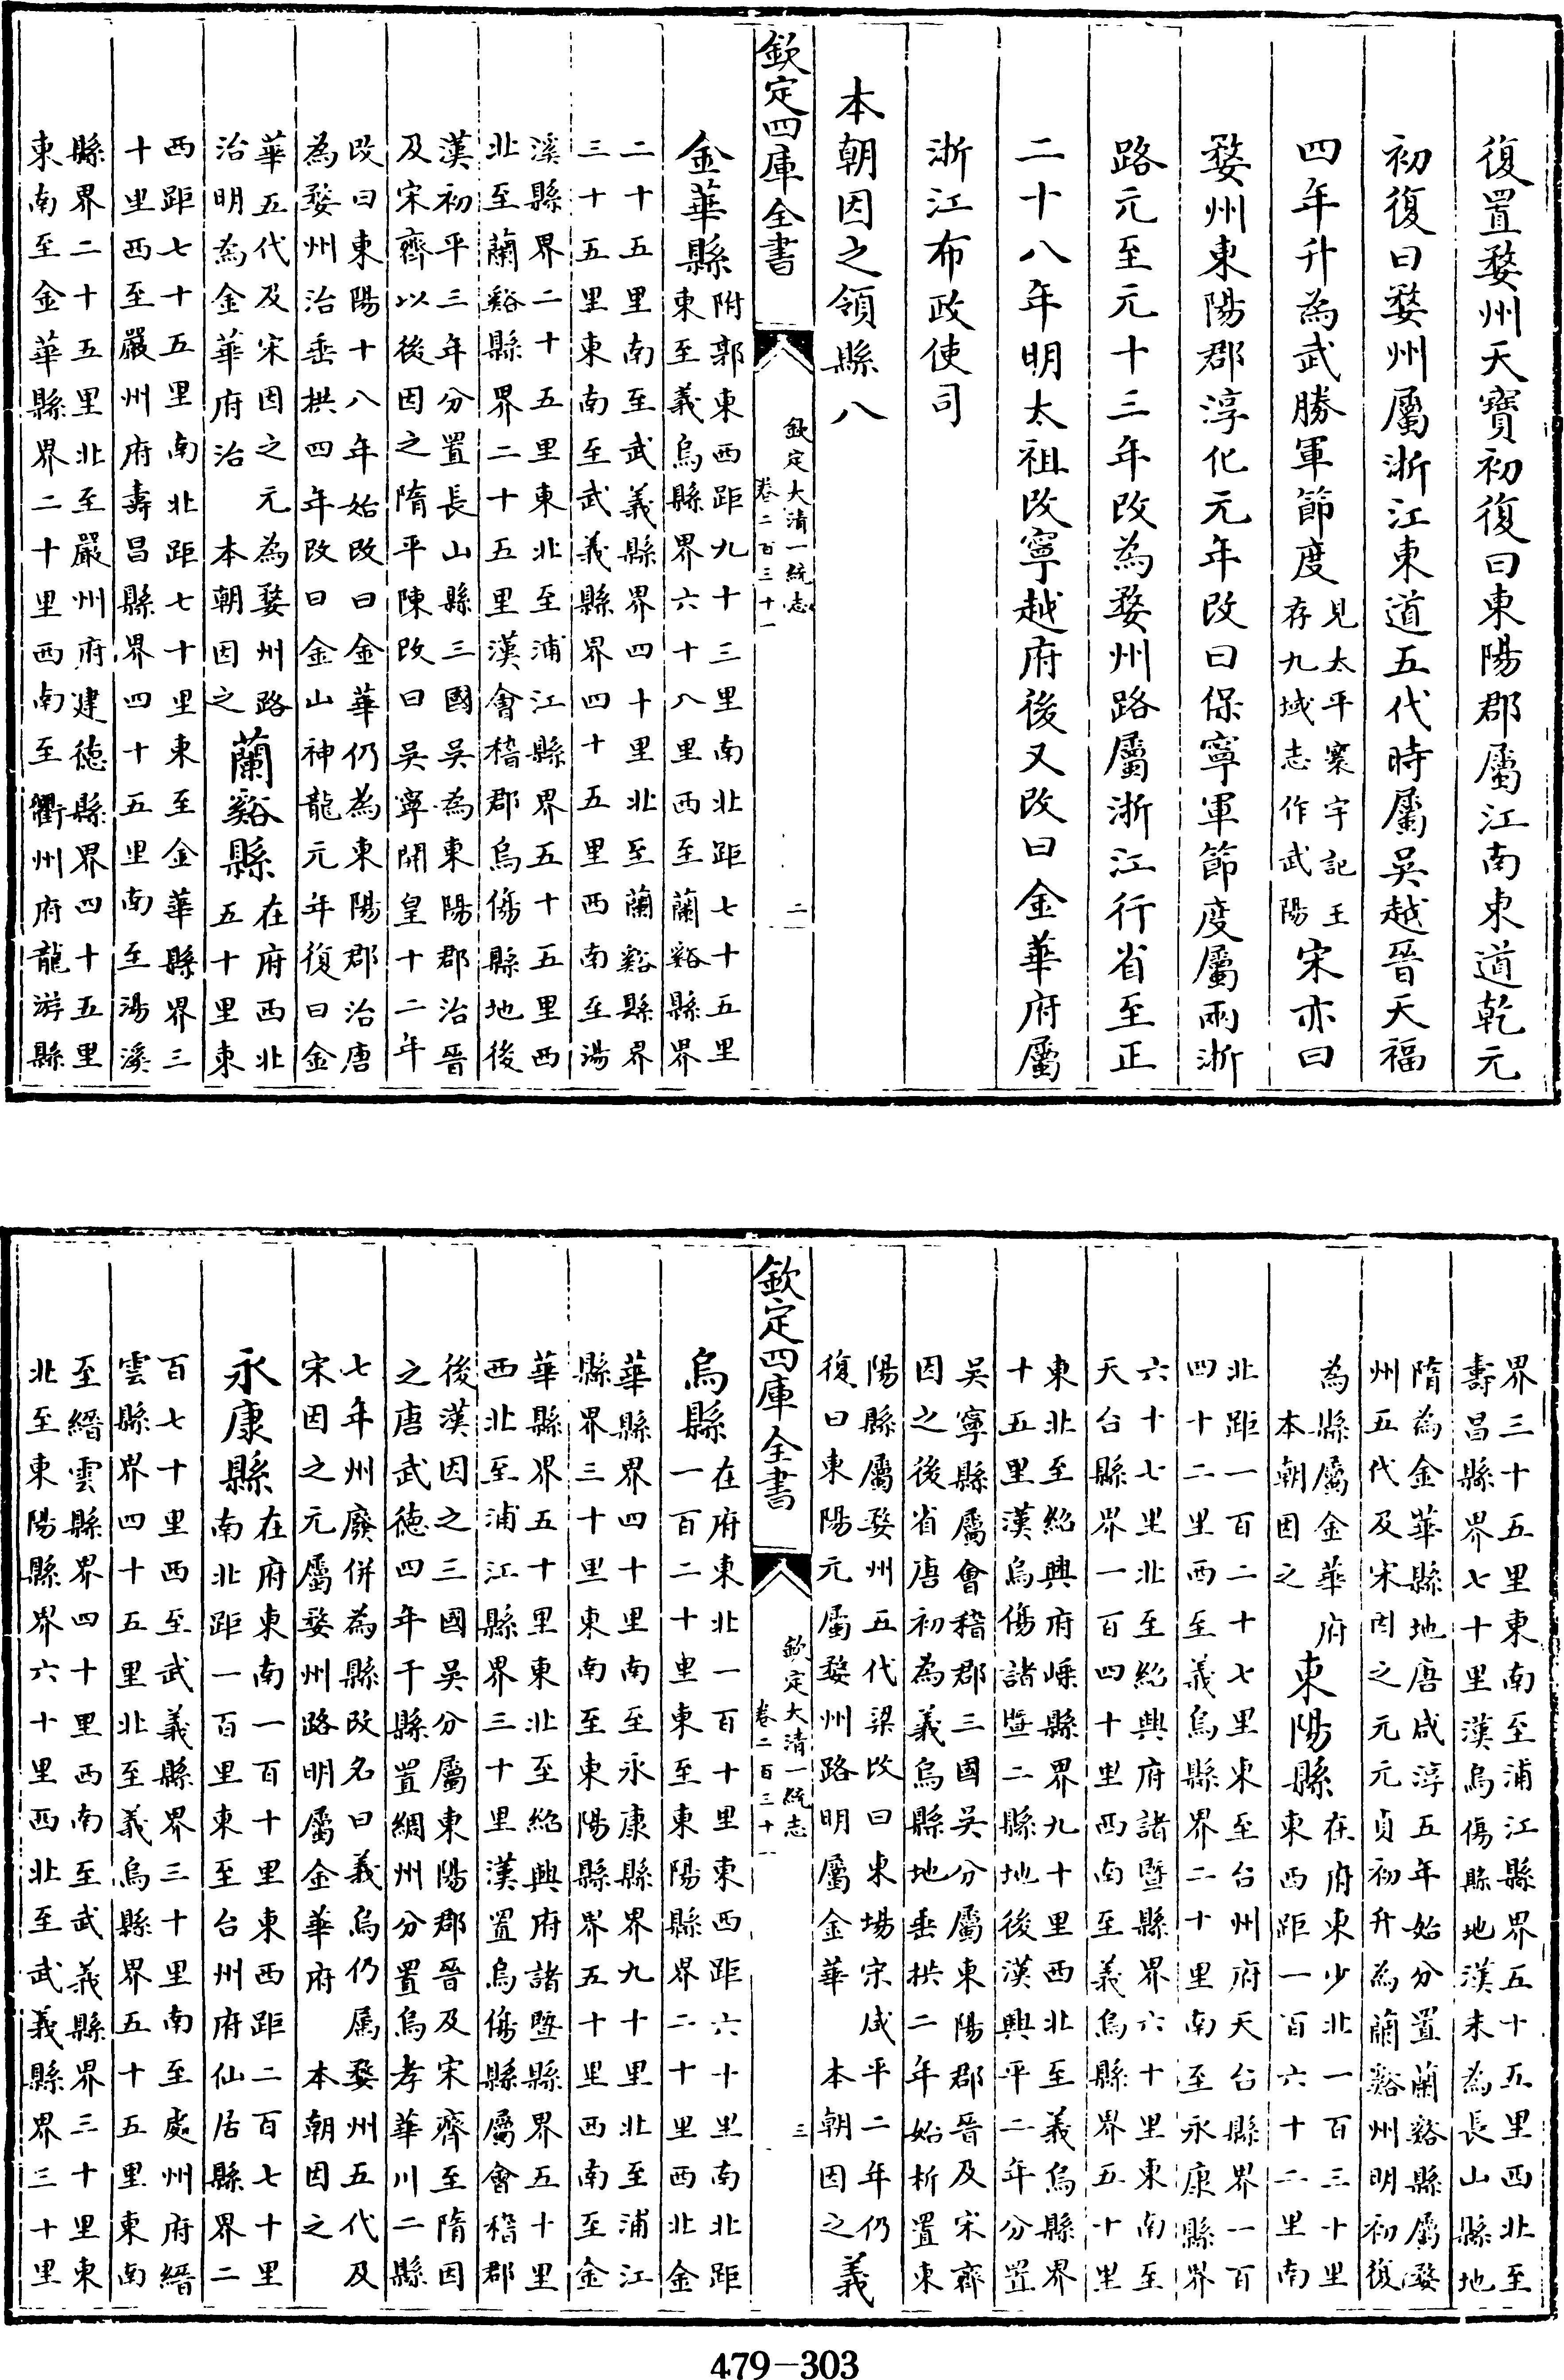 復置婺州天寶初復曰東陽郡屬江南東道乾元
初復曰婺州屬浙江東道五代時屬吳越晉天福
四年升為武勝軍節度
見太平寰宇記王
存九域志作武陽
宋亦曰
婺州東陽郡淳化元年改曰保寧軍節度屬兩浙
路元至元十三年改為婺州路屬浙江行省至正
二十八年明太祖改寧越府後又改曰金華府屬
浙江布政使司
本朝因之領縣八
欽定四庫全書
欽定大清一統志
卷二百三十一
二
金華縣
附郭東西距九十三里南北距七十五里
東至義烏縣界六十八里西至蘭谿縣界
二十五里南至武義縣界四十里北至蘭谿縣界
三十五里東南至武義縣界四十五里西南至湯
溪縣界二十五里東北至浦江縣界五十五里西
北至蘭谿縣界二十五里漢會稽郡烏傷縣地後
漢初平三年分置長山縣三國吳為東陽郡治晉
及宋齊以後因之隋平陳改曰吳寧開皇十二年
改曰東陽十八年始改曰金華仍為東陽郡治唐
為婺州治垂拱四年改曰金山神龍元年復曰金
華五代及宋因之元為婺州路
治明為金華府治 本朝因之
蘭谿縣
在府西北
五十里東
西距七十五里南北距七十里東至金華縣界三
十里西至嚴州府壽昌縣界四十五里南至湯溪
縣界二十五里北至嚴州府建德縣界四十五里
東南至金華縣界二十里西南至衢州府龍游縣
界三十五里東南至浦江縣界五十五里西北至
壽昌縣界七十里漢烏傷縣地漢末為長山縣地
隋為金華縣地唐咸淳五年始分置蘭谿縣屬婺
州五代及宋因之元元貞初升為蘭谿州明初復
為縣屬金華府
本朝因之
東陽縣
在府東少北一百三十里
東西距一百六十二里南
北距一百二十七里東至台州府天台縣界一百
四十二里西至義烏縣界二十里南至永康縣界
六十七里北至紹興府諸暨縣界六十里東南至
天台縣界一百四十里西南至義烏縣界五十里
東北至紹興府嵊縣界九十里西北至義烏縣界
十五里漢烏傷諸暨二縣地後漢興平二年分置
吳寧縣屬會稽郡三國吳分屬東陽郡晉及宋齊
因之後省唐初為義烏縣地垂拱二年始析置東
陽縣屬婺州五代梁改曰東場宋咸平二年仍
復曰東陽元屬婺州路明屬金華 本朝因之
義
欽定四庫全書
欽定大清一統志
卷二百三十一
三
烏縣
在府東北一百十里東西距六十里南北距
一百二十里東至東陽縣界二十里西北金
華縣界四十里南至永康縣界九十里北至浦江
縣界三十里東南至東陽縣界五十里西南至金
華縣界五十里東北至紹興府諸暨縣界五十里
西北至浦江縣界三十里漢置烏傷縣屬會稽郡
後漢因之三國吳分屬東陽郡晉及宋齊至隋因
之唐武德四年于縣置綢州分置烏孝華川二縣
七年州廢併為縣改名曰義烏仍屬婺州五代及
宋因之元屬婺州路明屬金華府 本朝因之
永康縣
在府東南一百十里東西距二百七十里
南北距一百里東至台州府仙居縣界二
百七十里西至武義縣界三十里南至處州府縉
雲縣界四十五里北至義烏縣界五十五里東南
至縉雲縣界四十里西南至武義縣界三十里東
北至東陽縣界六十里西北至武義縣界三十里
479-303